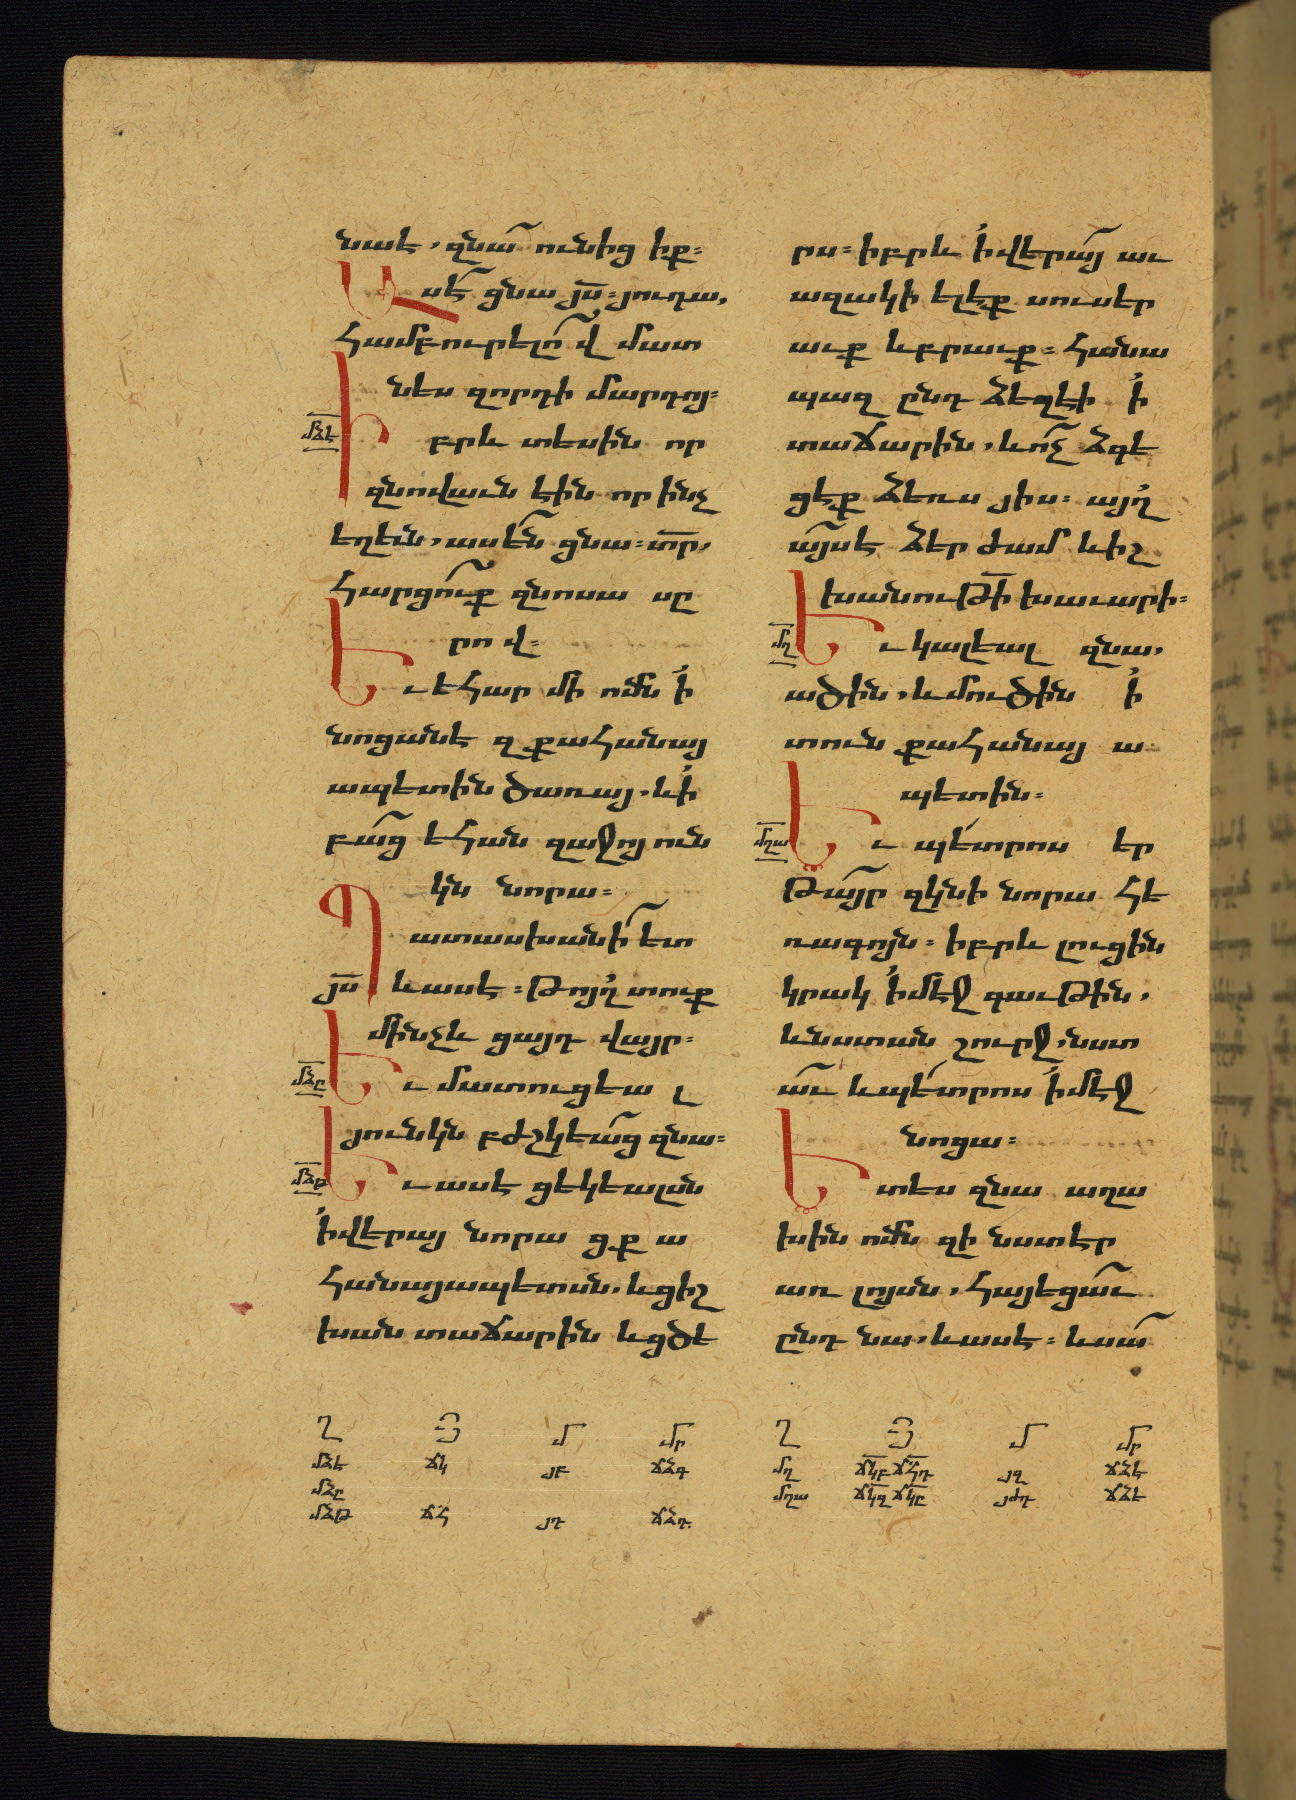 նաե, զնա՞ ունից իք։
Ասէ՞ ցնա յս։ յուդա,
Համբուրելո՞վ մատ
նես զորդի մարդոյ։
մձէ
Իբրև տեսին որ
զնովաւն էին որ ինչ
եղեւն, ասեն ցնա։ տր,
Հարցո՞ւք զնոսա սը
րով։
Եւ եհար մի ոմն ի՛
նոցանէ զքահանայ
ապետին ծառայ, և ի՛
բա՞ց եհան զաջոյ ուն
կն նորա։
Պատասխանի՞ ետ
յս և ասէ։ Թոյլ տուք
մինչև ցայդ վայր։
մձը
Եւ մատուցեալ
յունկն բժշկեա՞ց զնա։
մձթ
Եւ ասէ ցեկեալսն
ի՛ վերայ նորա ցք ա
Հանայապետսն, և ցիշ
խան տաճարին և ցծե
րս։ իբրև ի՛ վերա՞յ աւ
ազակի ելէք սուսեր
աւք և բրաւք։ Հանա
պազ ընդ ձեզէի ի՛
տաճարին, և ո՞չ ձգե
ցէք ձեռս յիս։ այլ
ա՞յսէ ձեր ժամ և իշ
խանութի խաւարի։
մղ
Եւ կալեալ զնա,
ածին, և մուծին ի՛
տուն քահանայ ա
պետին։
մղա
Եւ պե՛տրոս եր
Թա՞յր զկնի նորա Հե
ռագոյն։ իբրև լուցին
կրակ ի՛ մէջ գաւԹին,
և նստան շուրջ, նստ
ա՞ւ և պե՛տրոս ի՛ մէջ
նոցա։
Ետես զնա աղա
խին ոմն զի նստէր
առ լոյսն, Հայեցա՞ւ
ընդ նա, և ասէ։ և սա՞
Ղ Ց Մ Մր Ղ Ց Մ Մր
մձէ ճկ յբ ճձգ մղ ճկբ ճՀդ յզ ճձէ
մձը մղա ճկզ ճկը յժդ ճձե
մձթ ճՀ յդ ճձդ